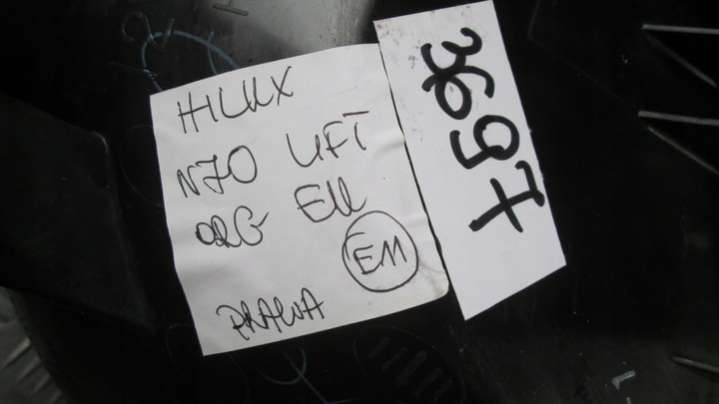 HILUX
N70 LIFT
ORG EU
E11
PRAWA
3697